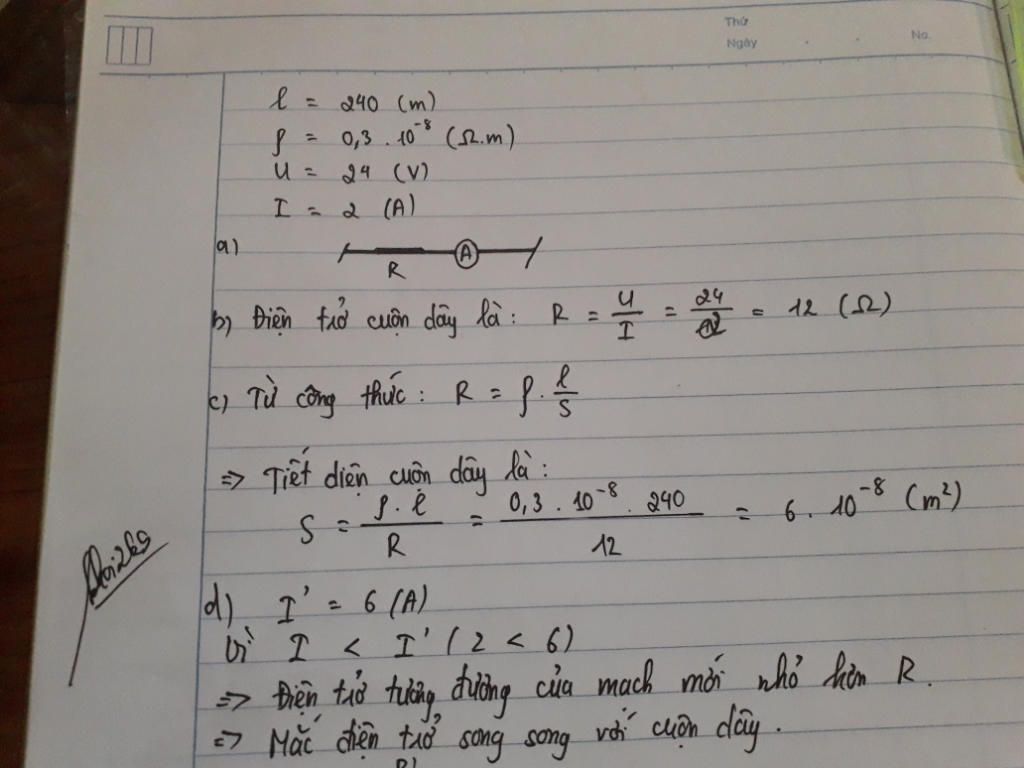 Thứ
Ngày . . No.
l = 240 (m)
ρ = 0,3 . 10⁻⁸ (Ω.m)
U = 24 (V)
I = 2 (A)
a)
R A
b) Điện trở cuộn dây là : R = U/I = 24/2 = 12 (Ω)
c) Từ công thức : R = ρ . l/S
=> Tiết diện cuộn dây là :
S = ρ . l / R = 0,3 . 10⁻⁸ . 240 / 12 = 6 . 10⁻⁸ (m²)
d) I' = 6 (A)
Vì I < I' ( 2 < 6)
=> Điện trở tương đương của mạch mới nhỏ hơn R .
=> Mắc điện trở song song với cuộn dây .